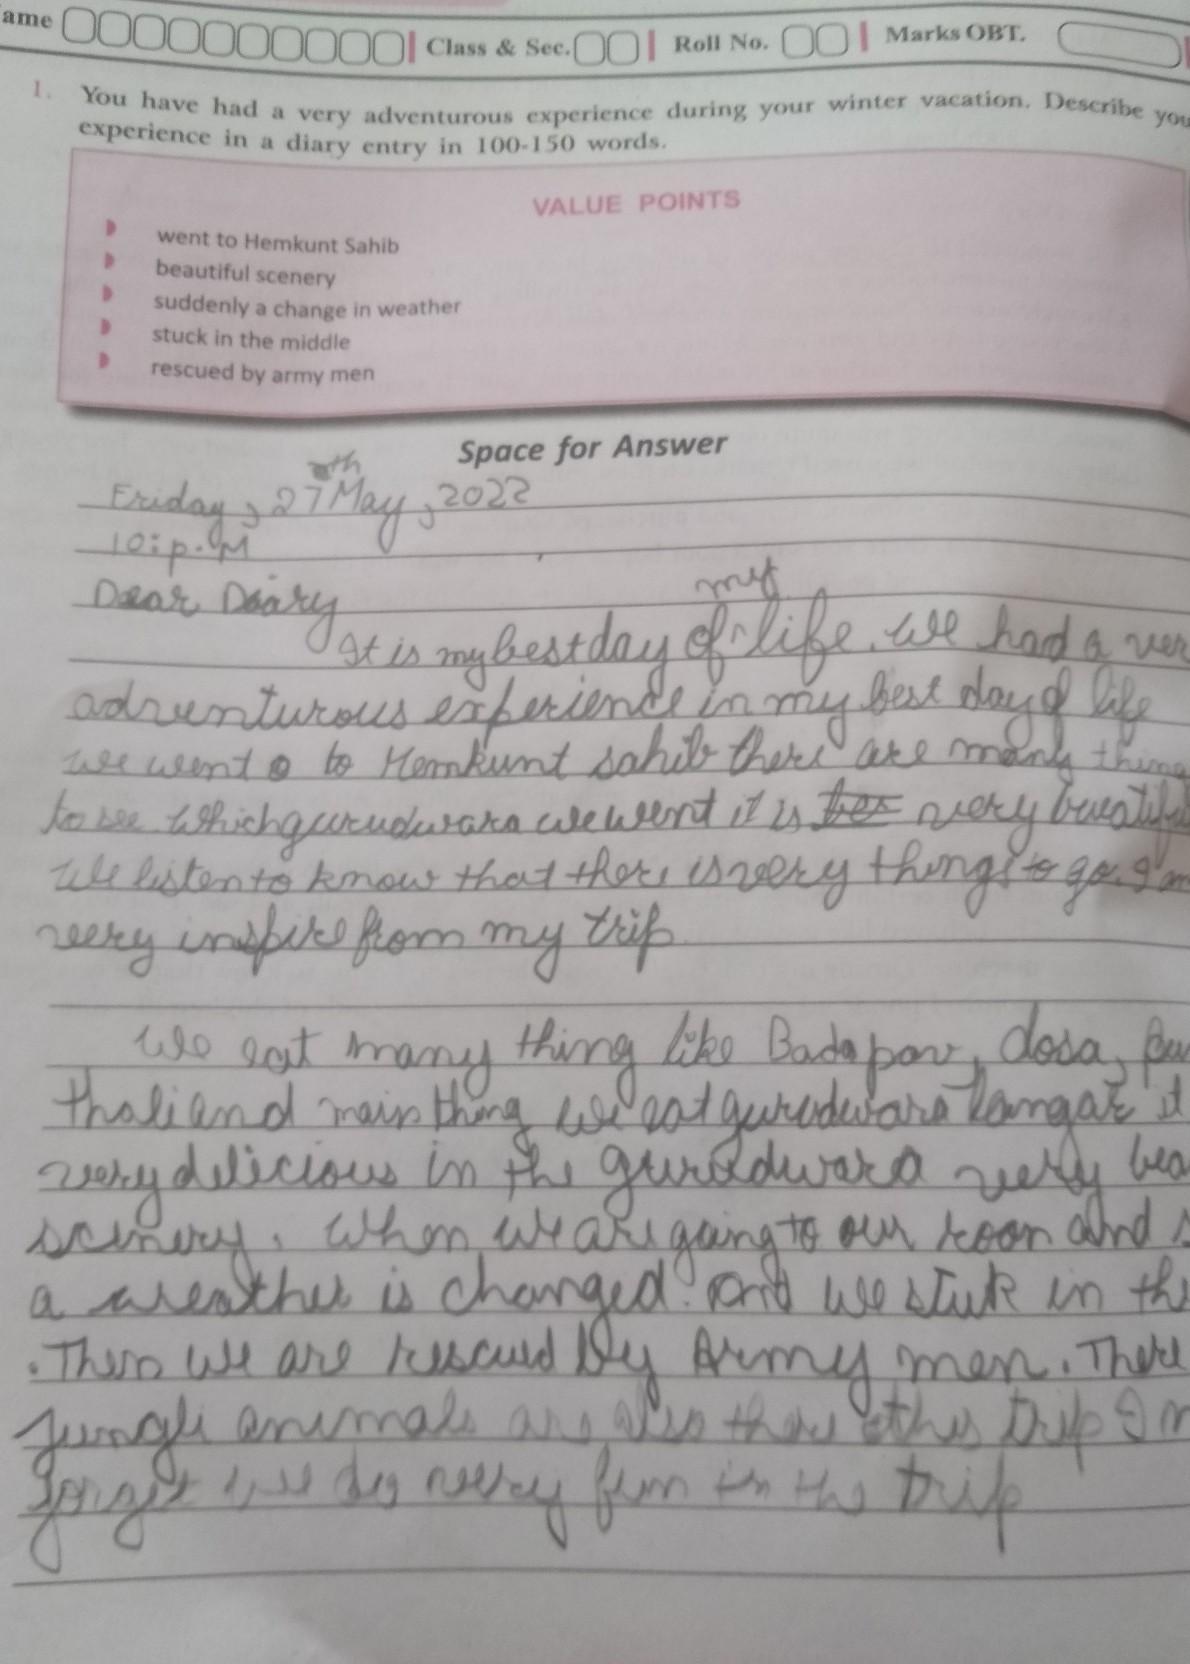 ame Class & Sec. Roll No. Marks OBT.
1. You have had a very adventurous experience during your winter vacation. Describe you
experience in a diary entry in 100-150 words.
VALUE POINTS
went to Hemkunt Sahib
beautiful scenery
suddenly a change in weather
stuck in the middle
rescued by army men
Space for Answer
Friday, 27th May, 2022
10: p.M
Dear Diary
It is my best day of my life. We had a ver
advunturous experience in my best day of life
we went to Hemkunt sahib there are many thing
to see which gurudwara we went it is very
We listen to know that there is very things to go. I am
very inspire from my trip
We eat many thing like Badapav, dosa,
thali and main thing we eat gurudwara langar it
very delicious in the gurudwara very bea
scinery. When we are going to our room and s
a weather is changed. And we stuk in th
. Then we are rescued by Army men. There
Jungli animals are also there this trip I n
forget we do very fun in the trip